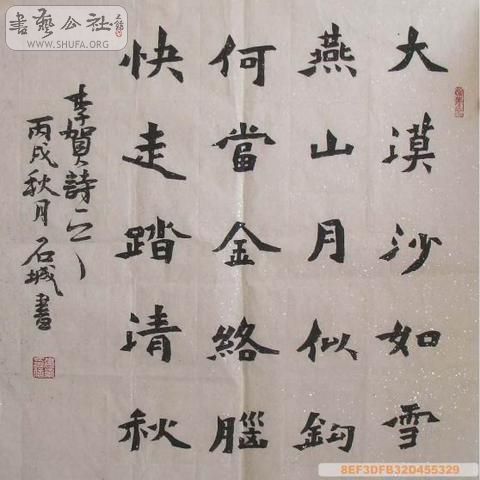 大漠沙如雪
燕山月似鈎
何當金絡腦
快走踏清秋
李賀詩一首
丙戌秋月石城書
書藝公社
WWW.SHUFA.ORG
8EF3DFB32D455329